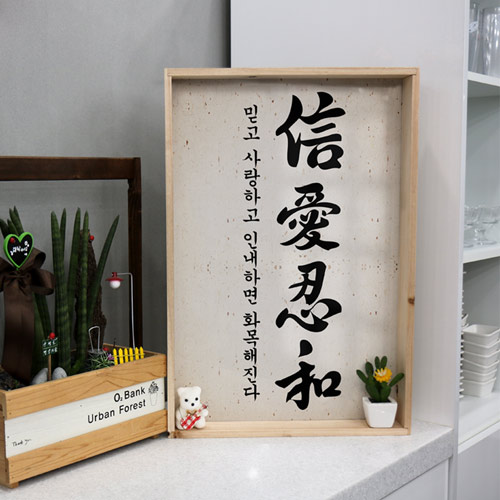 信愛忍和
믿고 사랑하고 인내하면 화목해진다
O₂ Bank
Urban Forest
Thank you